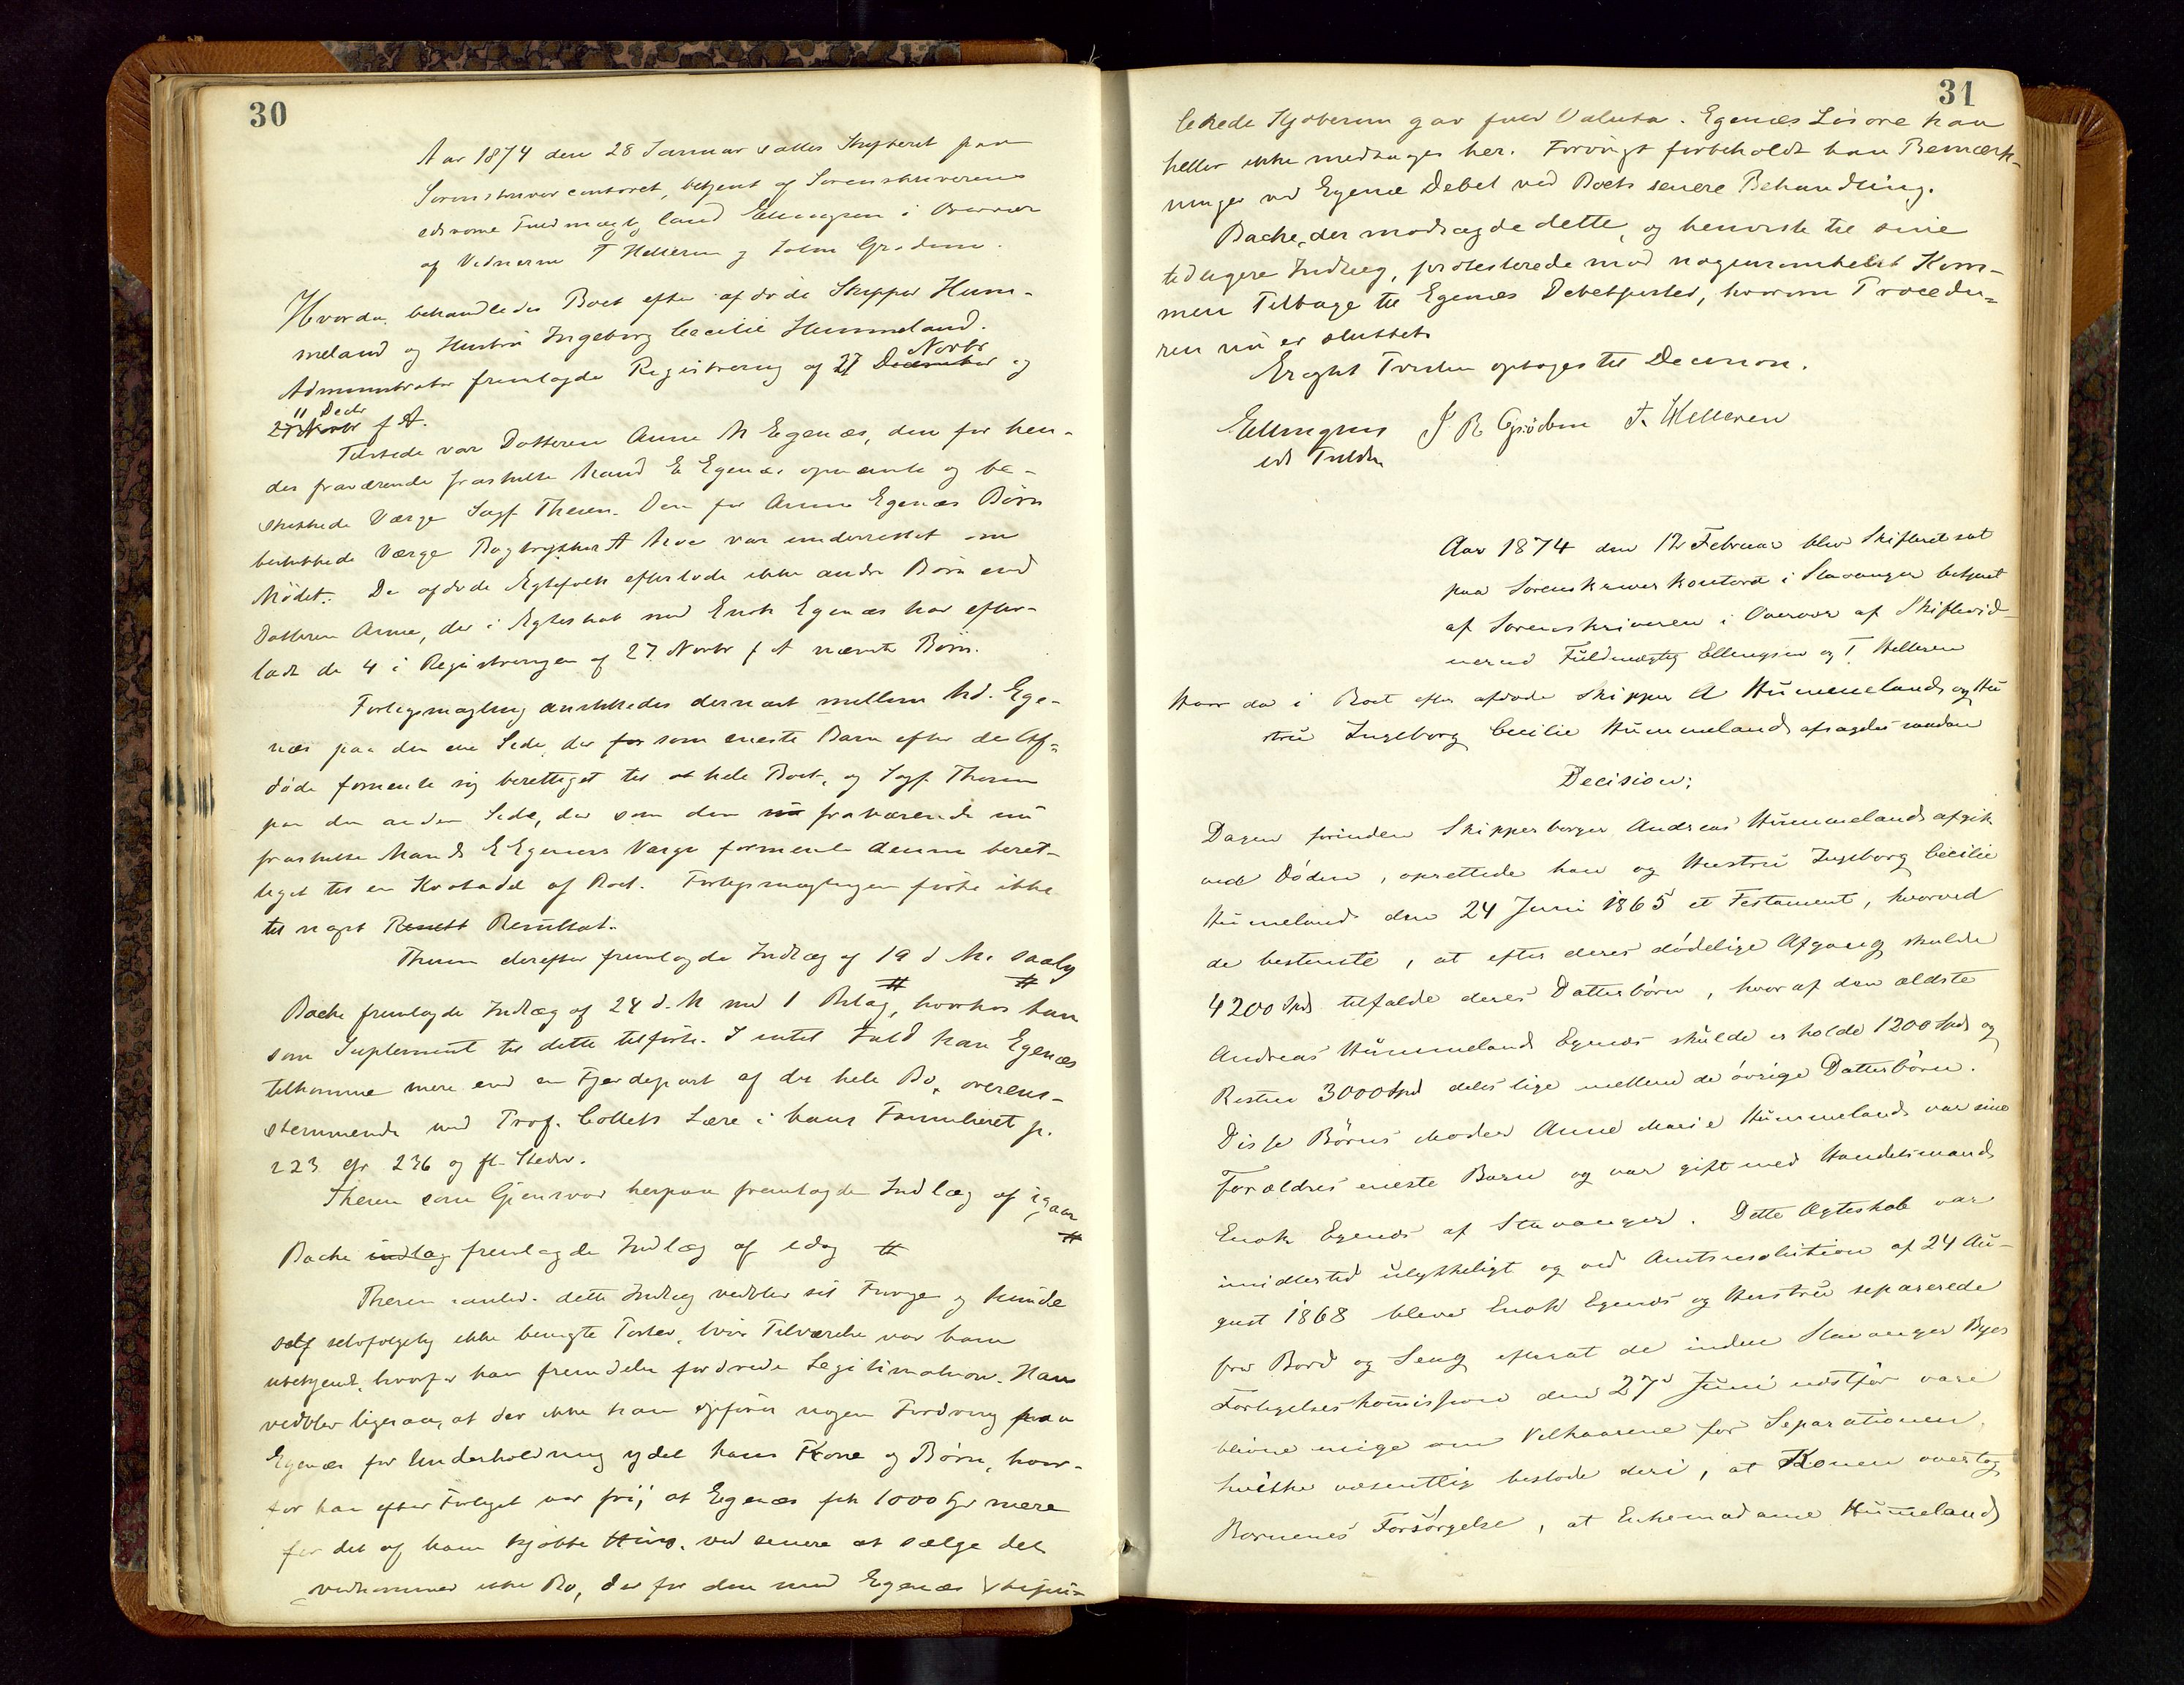 30
Aar 1874 den 28 Januar sattes Skifteret paa
Sorenskrivercontoret, betjent af Sorenskriverens
edsvorne Fuldmægtig Cand Ellingsen i Overvær
af Vidnerne T Helleren og John Grødem.
Hvorda behandledes Boet efter afdøde Skipper Hum-
meland og Hustru Ingeborg Cecilie Hummeland.
Administrator fremlagde Registrering af 27 December Novbr og
11 Decbr
27 Novbr f A.
Tilstede var Datteren Anne M Egenæs, den for hen-
des fraværende fraskilte Mand E Egenæs opnævnte og be-
skikkede Værge Sagf. Thesen. Den for Anne Egenæs Børn
beskikkede Værge Bogtrykker A Moe var underrettet om
Mødet. De afdøde Ægtefolk efterlode ikke andre Børn end
Datteren Anne, der i Ægteskab med Enok Egenæs har efter-
ladt de 4 i Registreringen af 27 Novbr f A nævnte Børn.
Forligsmægling anstilledes dernæst mellem Md. Ege-
næs paa den ene Side, der for som eneste Barn efter de Af-
døde formente sig berettiget til at hele Boet, og Sagf. Thesen
paa den anden Side, der som den nu fraværende nu
fraskilte Mands E Egenæs Værge formente denne beret-
tiget til en Hovedlod af Boet. Forligsmæglingen førte ikke
til noget Resultt Resultat.
Thesen derefter fremlagde Indlæg af 19 d M. saaly
#
#
Bache fremlagde Indlæg af 24 d. M med 1 Bilag, hvorhos han
som Suplement til dette tilførte. I intet Fald kan Egenæs
tilkomme mere end en Fjerdepart af det hele Bo, overens-
stemmende med Prof. Colletts Lære i hans Familieret p.
223 cfr 236 og fl. Steder.
Thesen som Gjensvar herpaa fremlagde Indlæg af igaar
#
Bache indlag fremlagde Indlæg af idag #
Thesen anled. dette Indlæg vedblev sit Forrige og kunde
self selvfølgelig ikke benegte Poster, hvis Tilværelse var ham
ubekjendt, hvorfor han fremdeles fordrede Legitimation. Han
vedblev ligesaa, at der ikke kan opføres nogen Fordring paa
Egenæs for Underholdning ydet hans Kone og Børn, hvor-
for han efter Forliget var fri; at Egenæs fik 1000 Spd mere
for det af ham kjøbte Hus, ved senere at sælge det
vedkommer ikke Bo, der for den med Egenæs stipu-
31
lerede Kjøbesum gav fuld Valuta. Egenæs Løsøre kan
heller ikke medtages her. Forøvrigt forbeholdt han Bemærk-
ninger ved Egenæs Debet ved Boets senere Behandling.
Bache, der modsagde dette, og henviste til sine
tidligere Indlæg, protesterede mod nogensomhelst Kom-
men Tilbage til Egenæs Debetposter, hvorom Procedu-
ren nu er sluttet.
Eragtet Tvisten optages til Decision.
Ellingsen J R Grödem T. Helleren
eds Fuldm
Aar 1874 den 12 Februar blev Skifteret sat
paa Sorenskriverkontoret i Stavanger betjent
af Sorenskriveren i Overvær af Skiftevid-
nerne Fuldmægtig Ellingsen og T. Helleren
Hvor da i Boet efter afdøde Skipper A Hummeland og Hu
stru Ingeborg Cecilie Hummeland afsagdes saadan
Decision:
Dagen forinden Skipperborger Andreas Hummeland afgik
ved Døden, oprettede han og Hustru Ingeborg Cecilie
Hummeland den 24 Juni 1865 et Testament, hvorved
de bestemte, at efter deres dødelige Afgang skulde
4200 Spd tilfalde deres Datterbørn, hvoraf den ældste
Andreas Hummeland Egenæs skulde erholde 1200 Spd og
Resten 3000 Spd deles lige mellem de øvrige Datterbørn.
Disse Børns Moder Anne Marie Hummeland var sine
Forældres eneste Barn og var gift med Handelsmand
Enok Egenæs af Stavanger. Dette Ægteskab var
imidlertid ulykkeligt og ved Amtsresolution af 24 Au-
gust 1868 bleve Enok Egenæs og Hustru separerede
fra Bord og Seng efterat de inden Stavanger Byes
Forligelseskommission den 27d Juni nestfør vare
blevne enige om Vilkaarene for Separationen,
hvilke væsentlig bestode deri, at Konen overtog
Børnenes Forsørgelse, at Enkemadame Hummeland